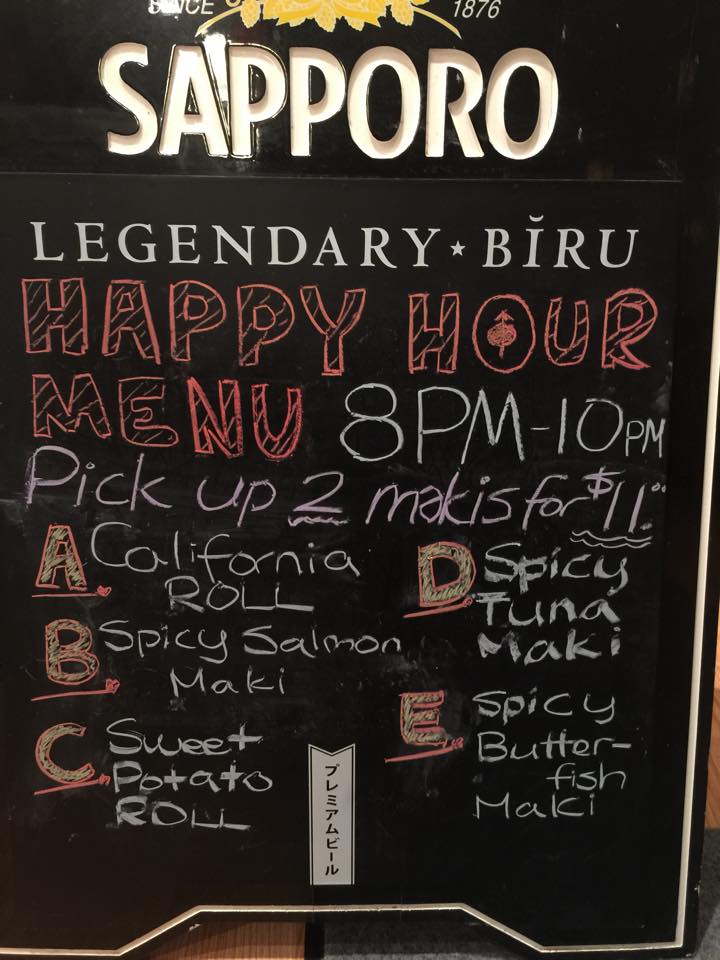 SINCE 1876
SAPPORO
LEGENDARY ★ BĬRU
HAPPY HOUR
MENU 8PM-10PM
Pick up 2 makis for $11.00
A California
ROLL
B Spicy Salmon
Maki
C Sweet
Potato
ROLL
D Spicy
Tuna
Maki
E Spicy
Butter-
fish
Maki
プレミアムビール